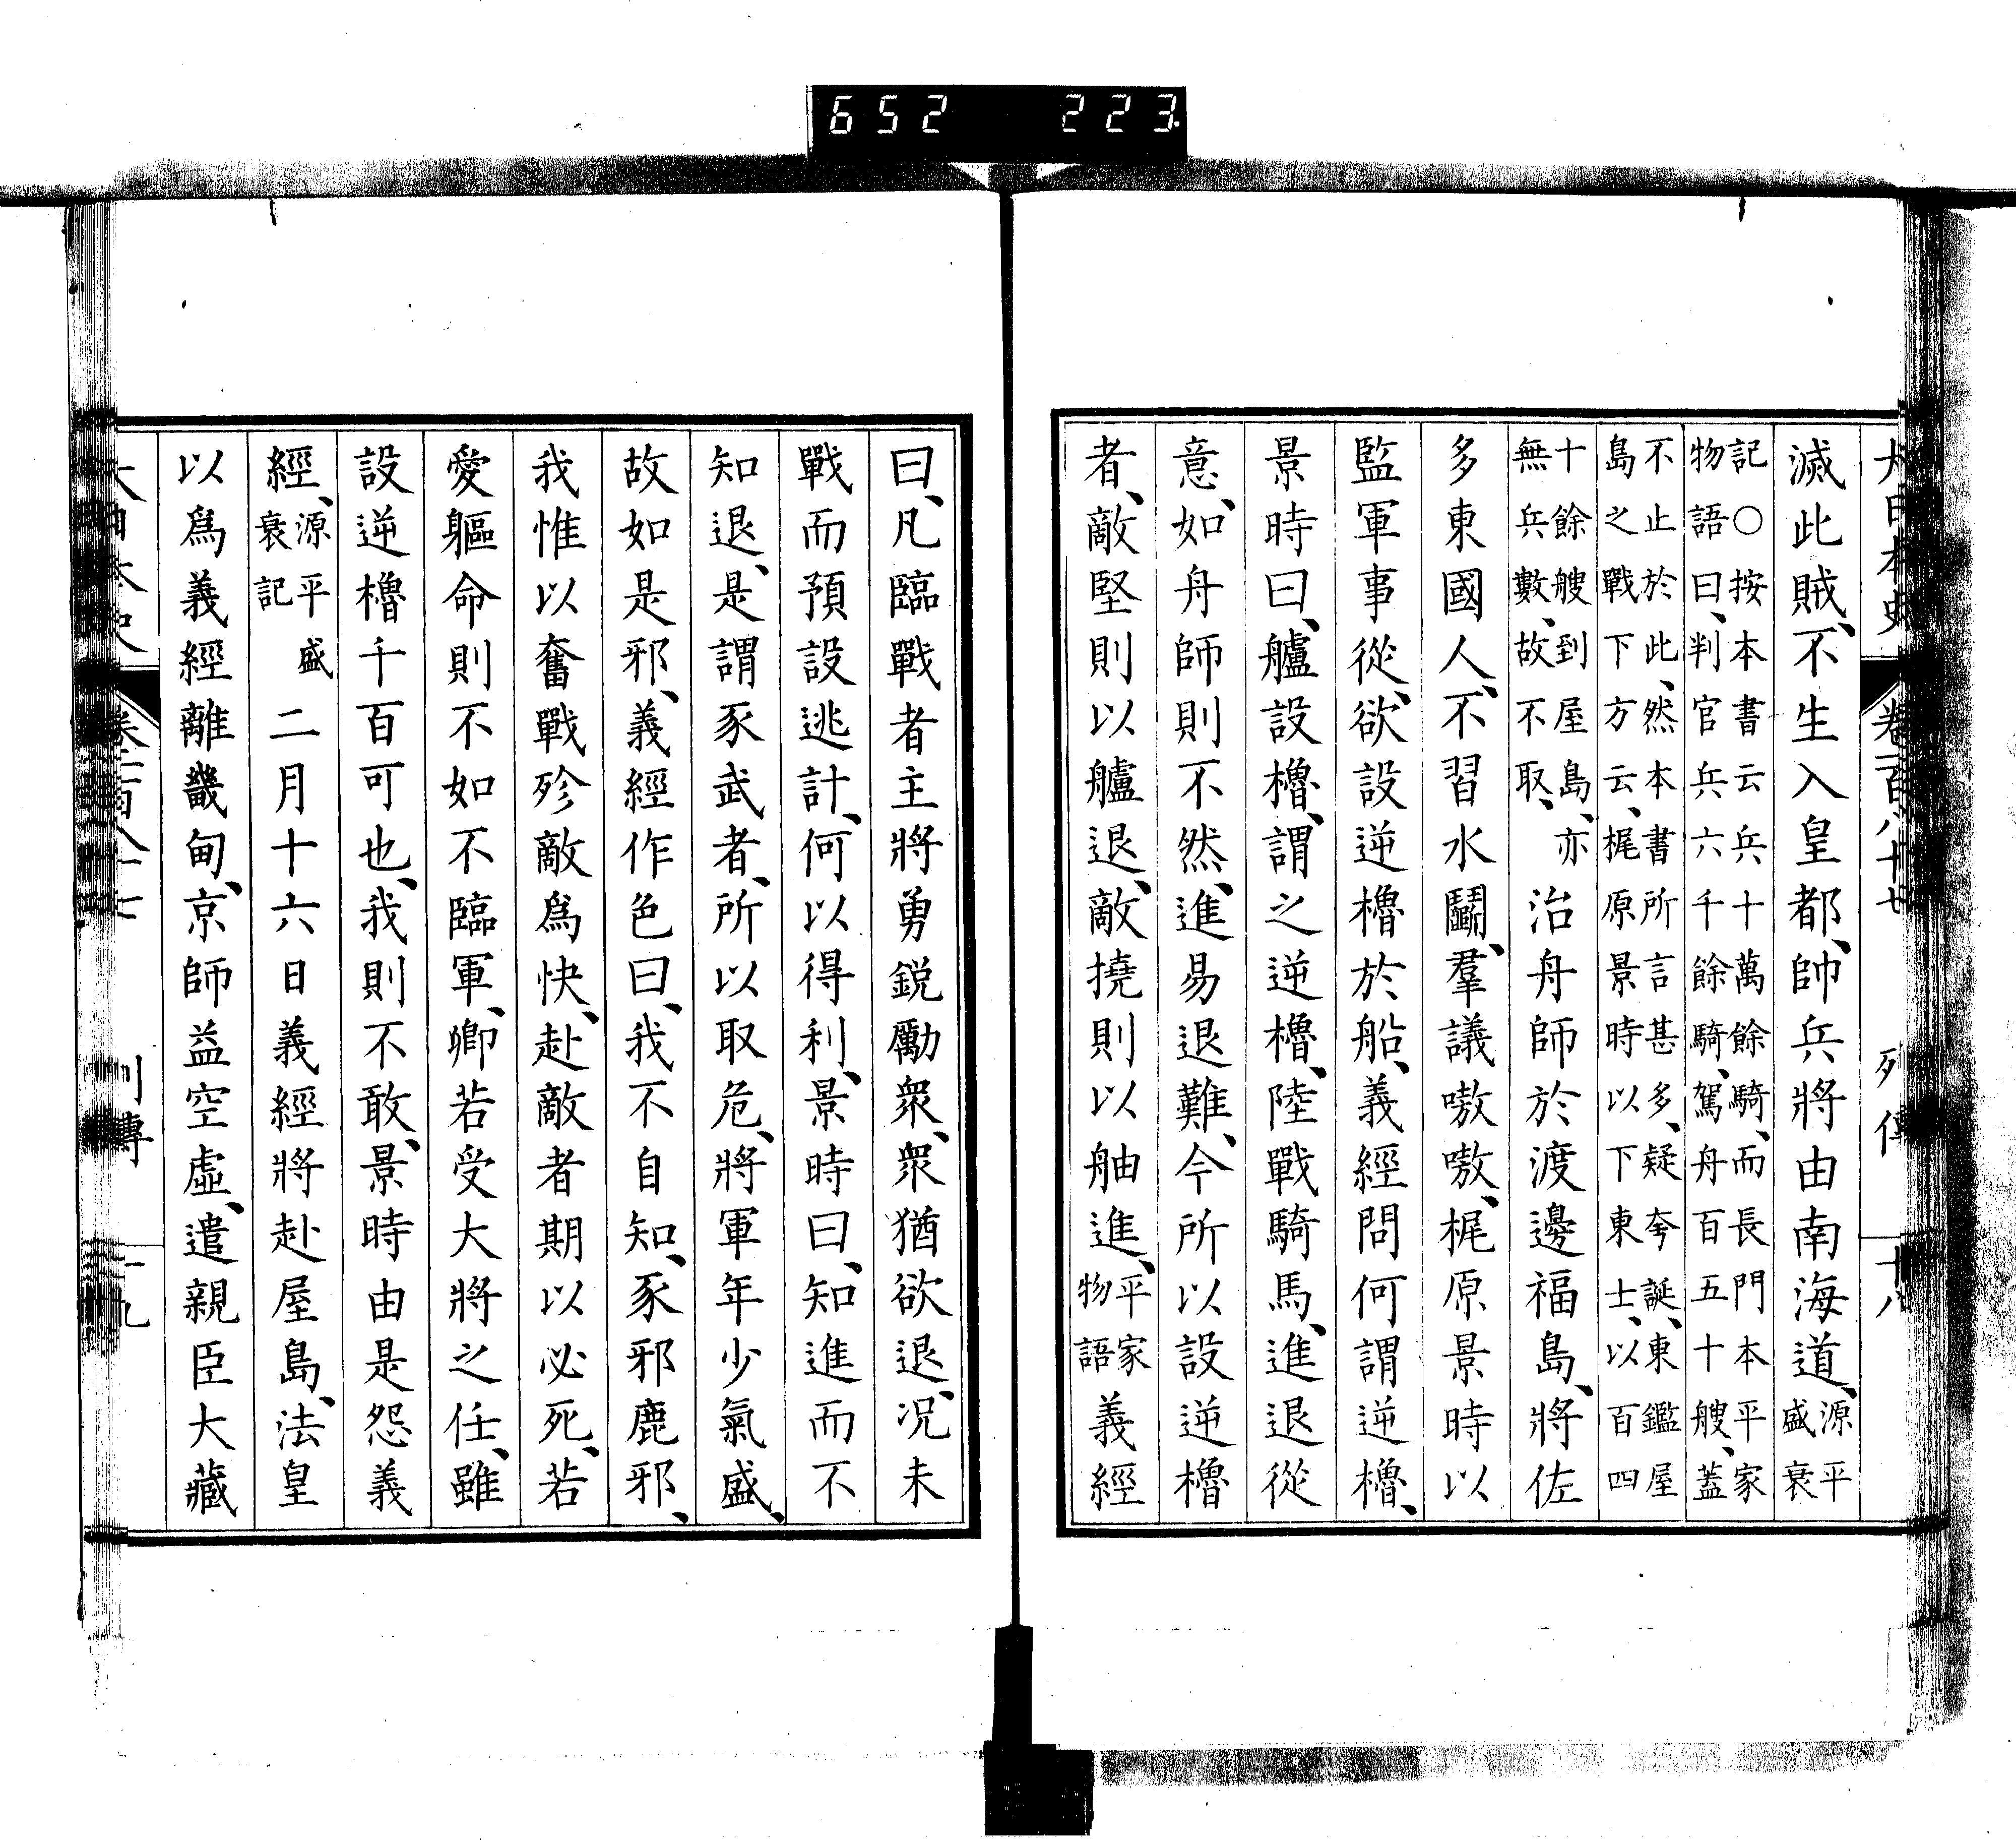 652 223
大日本史 卷一百八十七 列傳 十八
滅此賊、不生入皇都、帥兵將由南海道、源平盛衰
記○按本書云兵十萬餘騎、而長門本平家物語曰、判官兵六千餘騎、駕舟百五十艘、蓋
不止於此、然本書所言甚多、疑夸誕、東鑑屋島之戰下方云、梶原景時以下東士、以百四
十餘艘到屋島、亦無兵數、故不取、治舟師於渡邊福島、將佐
多東國人、不習水鬭、羣議嗷嗷、梶原景時以
監軍事從、欲設逆櫓於船、義經問何謂逆櫓、
景時曰、艫設櫓、謂之逆櫓、陸戰騎馬、進退從
意、如舟師則不然、進易退難、今所以設逆櫓
者、敵堅則以艫退、敵撓則以舳進、平家物語義經
曰、凡臨戰者主將勇鋭勵衆、衆猶欲退、況未
戰而預設逃計、何以得利、景時曰、知進而不
知退、是謂豕武者、所以取危、將軍年少氣盛、
故如是邪、義經作色曰、我不自知、豕邪鹿邪、
我惟以奮戰殄敵爲快、赴敵者期以必死、若
愛軀命則不如不臨軍、卿若受大將之任、雖
設逆櫓千百可也、我則不敢、景時由是怨義
經、源平盛衰記二月十六日義經將赴屋島、法皇
以爲義經離畿甸、京師益空虛、遣親臣大藏
大日本史 卷一百八十七 列傳 十九